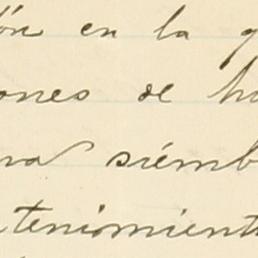 ón en la g
ones de h
na siémb
tenimient